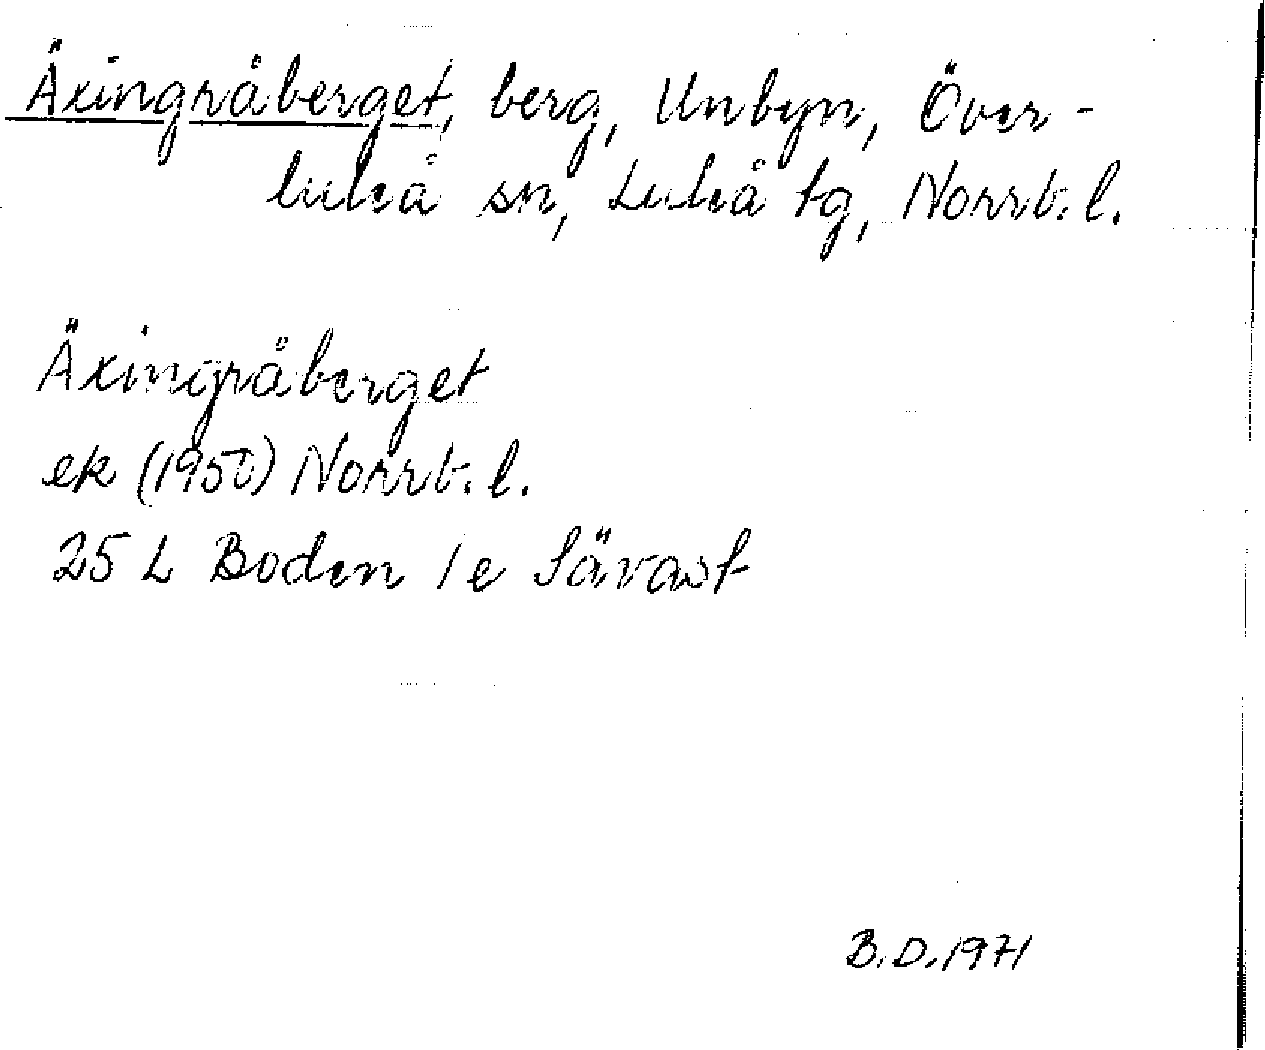 Äxingråberget, berg, Unbyn, Över-
luleå sn, Luleå tg, Norrb. l.
Äxingråberget
ek (1950) Norrb. l.
25 L Boden 1e Sävast
B.D. 1971